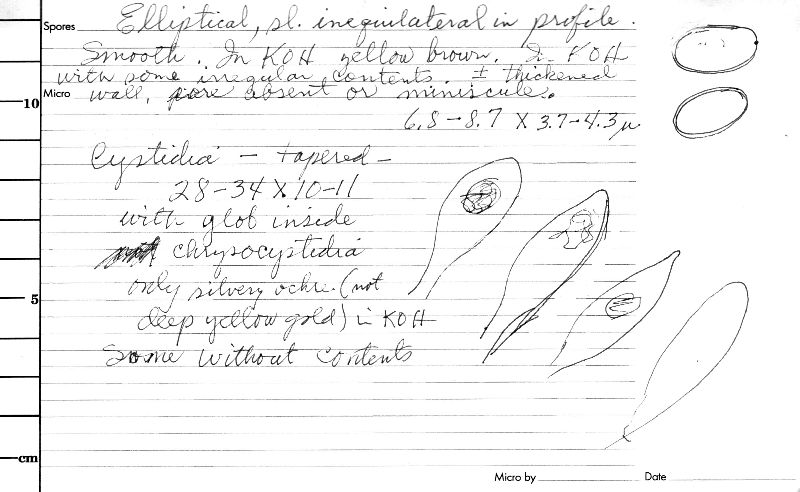 Spores Elliptical, sl. inequilateral in profile.
Smooth. In KOH yellow brown. In KOH
with some irregular contents. ± thickened
10 Micro wall, pore absent or miniscule.
6.8-8.7 X 3.7-4.3 µ
Cystidia - tapered -
28-34 X 10-11
with glob inside
chrysocystidia
5 only silvery ochre. (not
deep yellow gold) in KOH
Some without contents
cm
Micro by Date